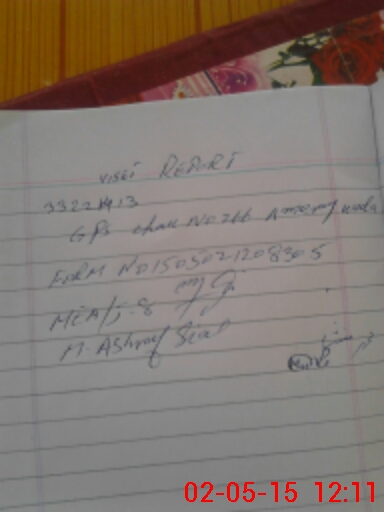 VISIT REPORT
33221413
GPS chak No 266
FORM NO 1505021208305
MEA/J-8
M. Ashraf Sial
02-05-15 12:11